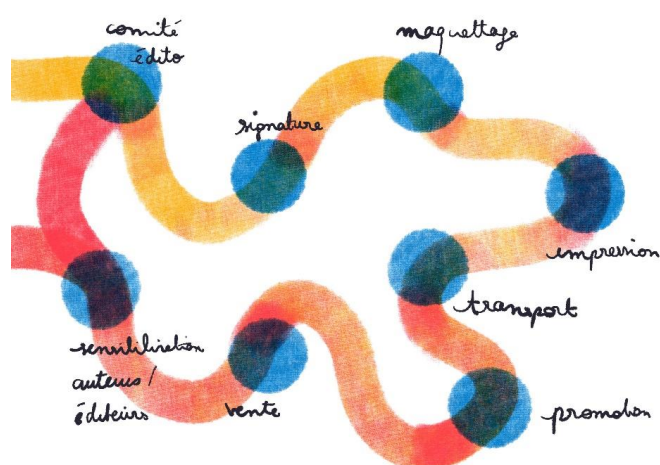 comité
édito
signature
maquettage
impression
transport
promotion
vente
sensibilisation
auteurs /
éditeurs